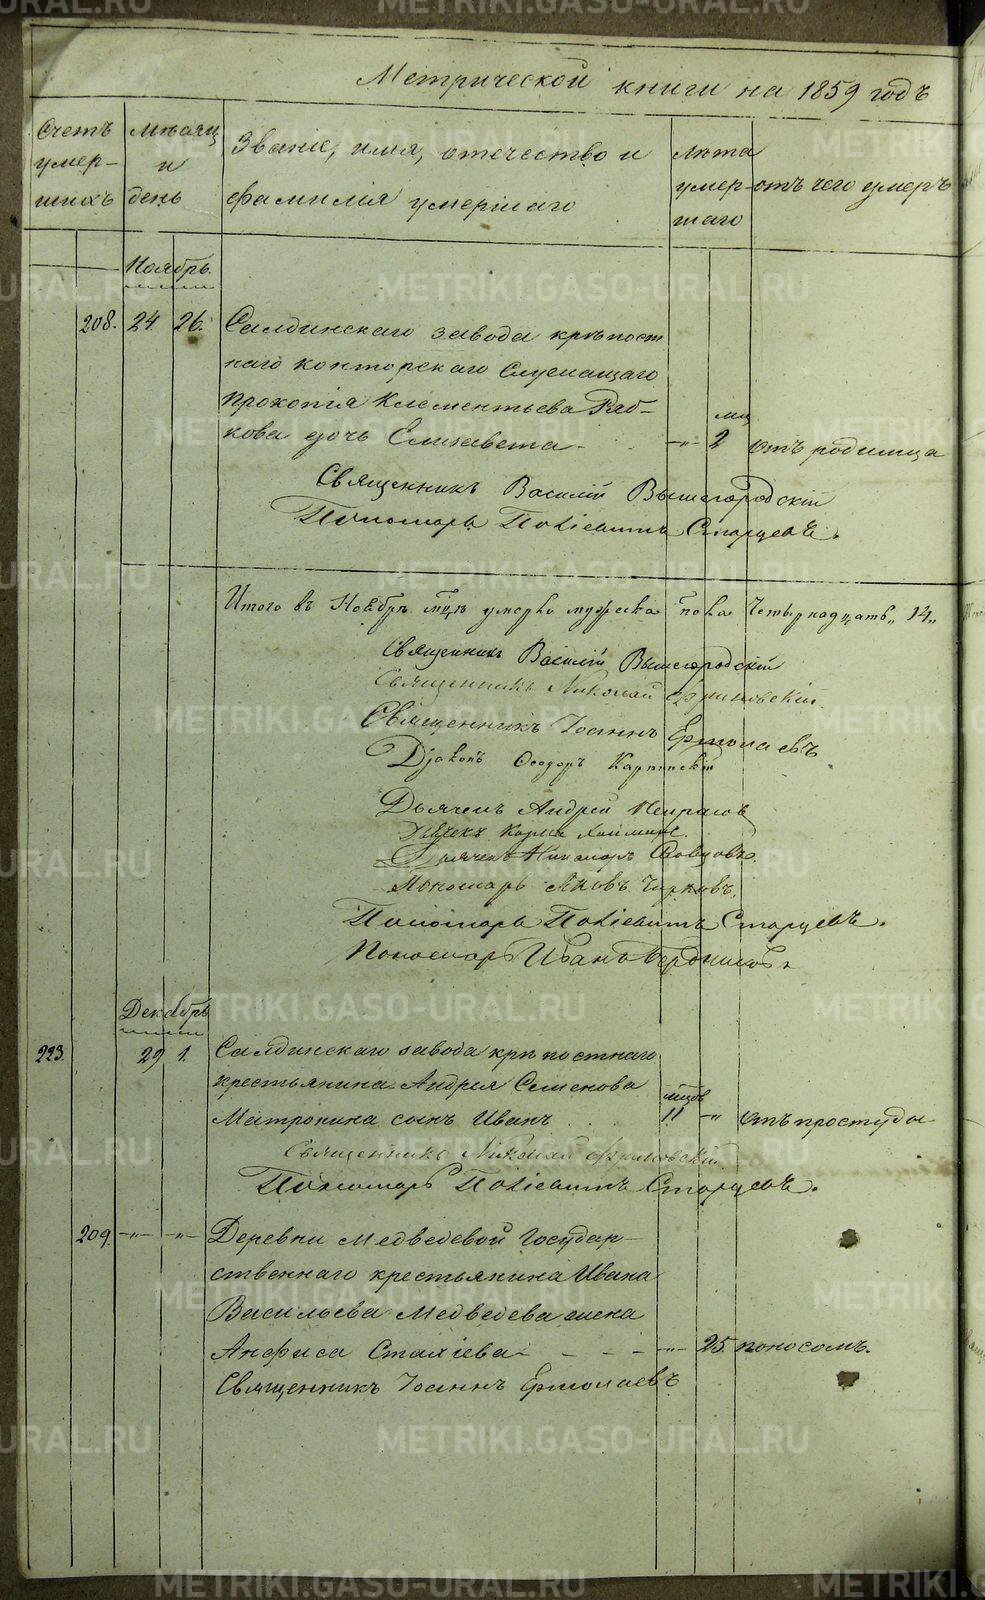 Метрической книги на 1859 годъ
Счетъ умер-шихъ
Мѣсяц и день
Званіе, имя, отечество и фамилія умершаго
Лѣта умер-шаго
отъ чего умеръ
Ноябрь.
208. 24 26. Салдинскаго завода крѣпост
наго конторскаго Служащаго
Прокопія Клементьева Ряб-
кова дочь Елисавета - " - мц 2 отъ родимца
Священникъ Василій Вышегородскій
Пономарь Старцевъ.
Итого въ Ноябрѣ мцѣ умерло мужеска пола Четырнадцать " 14 "
Священникъ Василій Вышегородскій
Священникъ Николай
Священникъ Іоаннъ Ермолаевъ
Діаконъ Ѳеодоръ Карпинскій
Дьячекъ Андрей
Дьячекъ
Дьячекъ Никаноръ
Пономарь Яковъ Чирковъ.
Пономарь Старцевъ.
Пономарь Иванъ
Декабрь
223. 29 1. Салдинскаго завода крѣпостнаго
крестьянина Андрея Семенова
Митронина сынъ Иванъ . . . мцовъ 11 - " отъ простуды
Священникъ Николай
Пономарь Старцевъ.
209. - " - - " - Деревни Медведевой Государ-
ственнаго крестьянина Ивана
Васильева Медведева жена
Анфиса - - - - - " - 25. поносомъ.
Священникъ Іоаннъ Ермолаевъ
METRIKI.GASO-URAL.RU